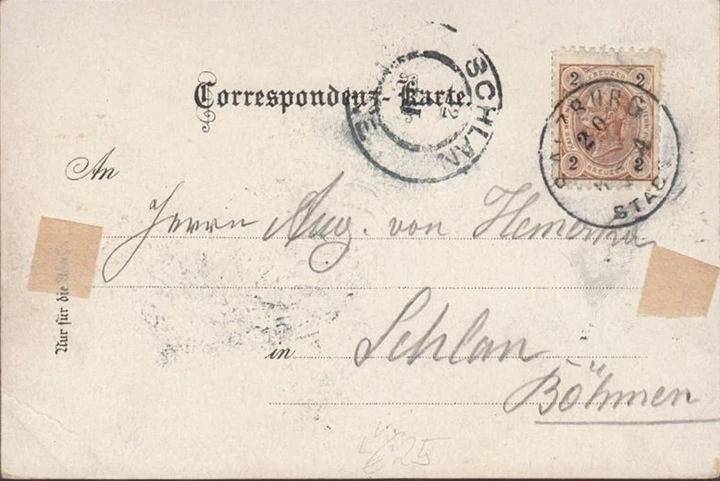 Correspondenz-Karte.
SCHLAN
2 KREUZER 2
2 KREUZER 2
SALZBURG
20 4
STADT
An
Herrn Aug. von
in Schlan
Böhmen
Nur für die
25